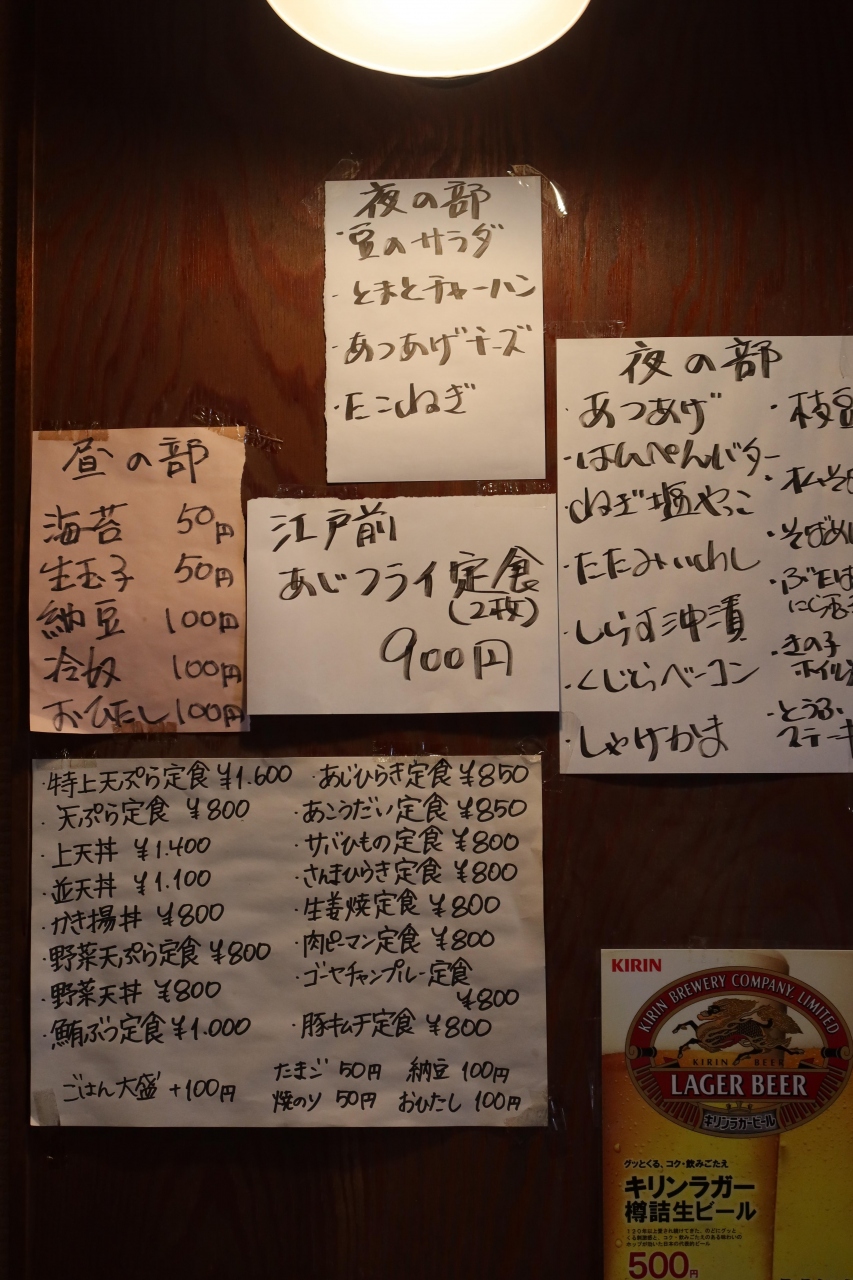 夜の部
・豆のサラダ
・とまとチャーハン
・あつあげチーズ
・たこねぎ
夜の部
・あつあげ
・はんぺんバター
・ねぎ塩やっこ
・たたみいわし
・しらす沖漬
・くじらベーコン
・しゃけかま
・枝豆
・そばめ
・ぶたば
にら
・きの子
ホイル
・とうふ
ステーキ
昼の部
海苔 50円
生玉子 50円
納豆 100円
冷奴 100円
おひたし 100円
江戸前
あじフライ定食
(2枚)
900円
・特上天ぷら定食 ¥1.600
・天ぷら定食 ¥800
・上天丼 ¥1.400
・並天丼 ¥1.100
・かき揚丼 ¥800
・野菜天ぷら定食 ¥800
・野菜天丼 ¥800
・鮪ぶつ定食 ¥1.000
・あじひらき定食 ¥850
・あこうだい定食 ¥850
・サバひもの定食 ¥800
・さんまひらき定食 ¥800
・生姜焼定食 ¥800
・肉ピーマン定食 ¥800
・ゴーヤチャンプルー定食
¥800
・豚キムチ定食 ¥800
ごはん大盛 +100円
たまご 50円 納豆 100円
焼のり 50円 おひたし 100円
KIRIN
KIRIN BREWERY COMPANY, LIMITED
KIRIN BEER
LAGER BEER
キリンラガービール
グッとくる、コク・飲みごたえ
キリンラガー
樽詰生ビール
500円